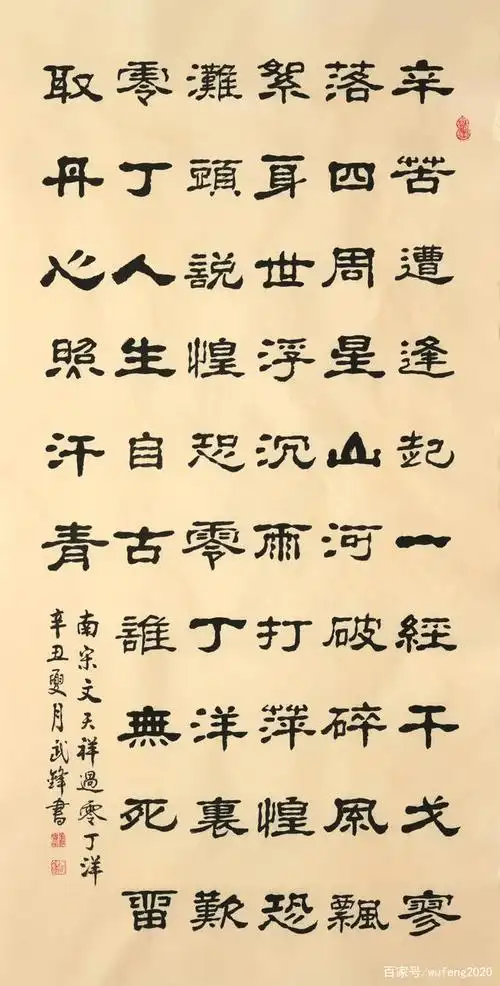 辛苦遭逢起一經干戈寥
落四周星山河破碎風飄
絮身世浮沉雨打萍惶恐
灘頭說惶恐零丁洋裏歎
零丁人生自古誰無死留
取丹心照汗青
南宋文天祥過零丁洋
辛丑夏月武鋒書
百家号/wufeng2020